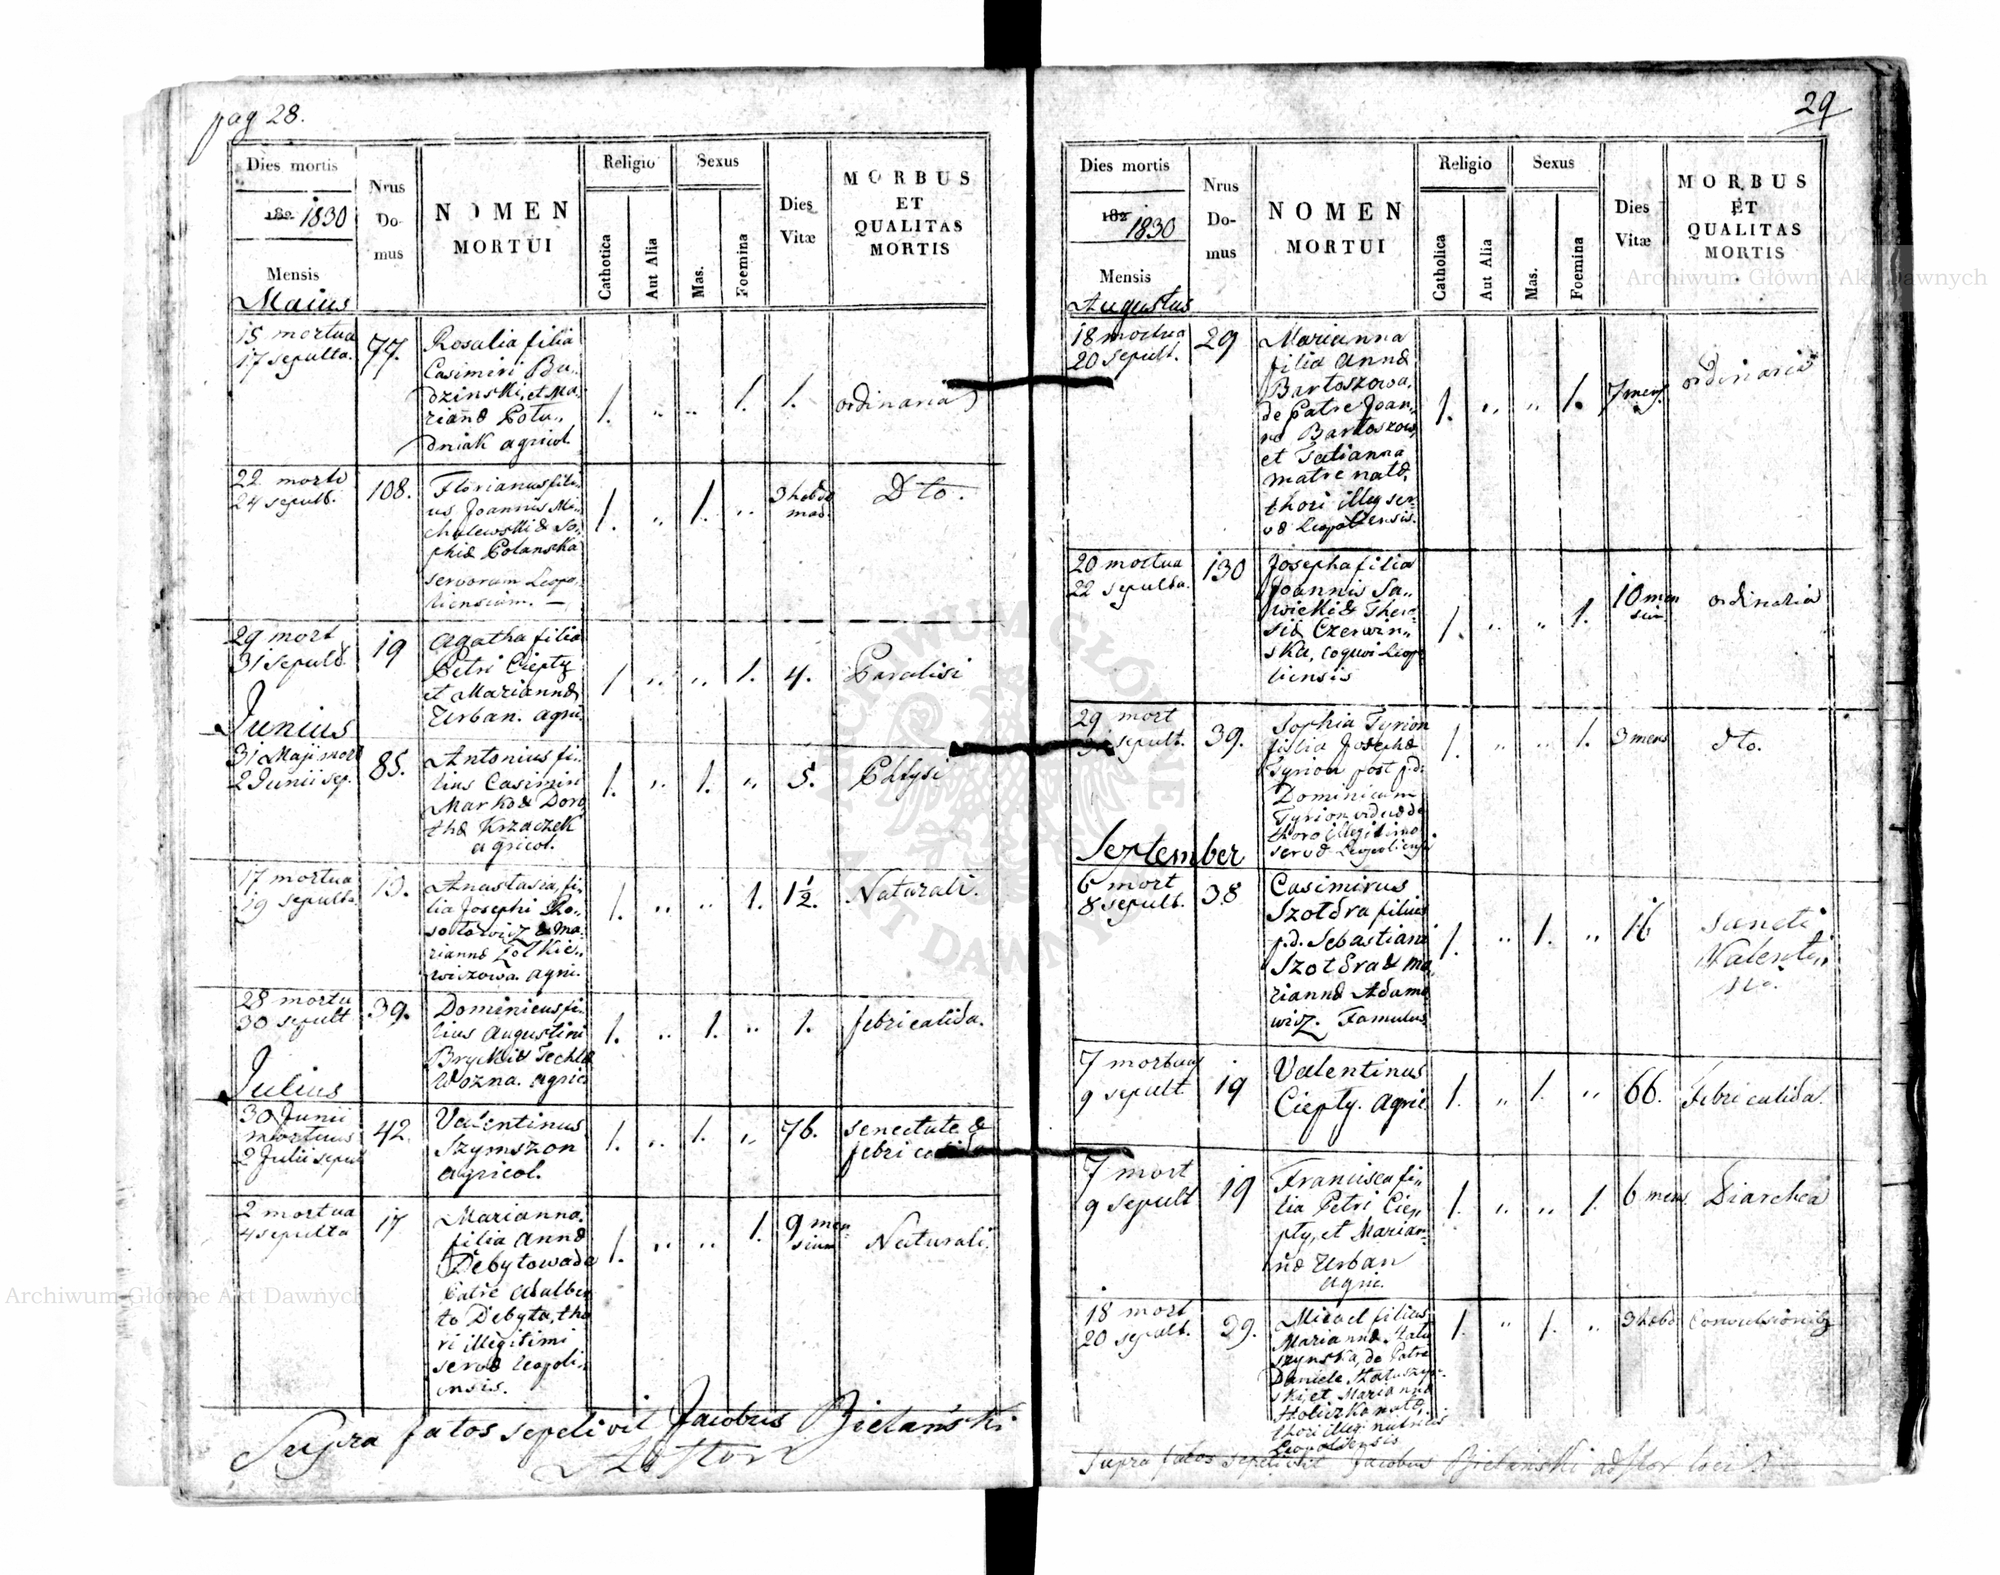 pag 28.
Dies mortis
Nrus Domus
NOMEN MORTUI
Religio
Sexus
Dies Vitæ
MORBUS ET QUALITAS MORTIS
182 1830
Mensis
Catholica
Aut Alia
Mas.
Foemina
Maius
15 mortua
17 sepulta.
77.
Rosalia filia
Casimiri Bu-
dzinski, et Ma-
riannæ Potu-
dniak agricol.
1. " " 1. 1. ordinaria
22 mortu
24 sepult.
108.
Florianus fili-
us Joannis Mi-
chalewski & So-
phiæ Polanska
servorum Leopo-
liensium. —
1. " 1. " 3 hebdo
mad.
Dto.
29 mort
31 sepult.
19
Agatha filia
Petri Ciepty
et Mariannæ
Urban. agric.
1 " " 1. 4. Paralisi
Junius
31 Maji mort
2 Junii sep.
85.
Antonius fi-
lius Casimiri
Marko & Doro
theæ Krzaczek
agricol.
1. " 1. " 5. Phtysi
17 mortua
19 sepulta.
13.
Anastasia, fi-
lia Josephi
& Ma-
riannæ Zotkie-
wiczowa. agri.
1. " " 1. 1½. Naturali.
28 mortu
30 sepult
39.
Dominicus fi-
lius Augustini
Brycki & Teclæ
Wozna. agric
1. " 1. " 1. febri calida.
Julius
30 Junii
mortuus
2 Julii sepul
42.
Valentinus
Szymszon
agricol.
1. " 1. " 76. senectute &
febri
2 mortua
4 sepulta
17
Marianna.
filia Annæ
Debytowa de
Patre Adalber
to Debyta, tho
ri illegitimi
servæ Leopoli-
ensis.
1. " " 1. 9 men
sium
Naturali.
Supra fatos sepelivit Jacobus Bielański
29
Dies mortis
Nrus Domus
NOMEN MORTUI
Religio
Sexus
Dies Vitæ
MORBUS ET QUALITAS MORTIS
182 1830
Mensis
Catholica
Aut Alia
Mas.
Foemina
Augustus
18 mortua
20 sepult.
29
Marianna
filia Annæ
Bartoszowa,
de Patre Joan-
ne Bartoszow
et Tatianna
matre natæ,
thori illeg ser-
væ Leopoliensis.
1. " " 1. 7 mens. ordinaria
20 mortua
22 sepulta.
130
Josepha filia
Joannis Sa-
wicki & There-
siæ Czerwin-
ska, coqui Leopo
liensis
1. " " 1. 10 men
sium
ordinaria
29 mort
31 sepult.
39.
Sophia Tyrion
filia Josephæ
Tyrion post p.d.
Dominicum
Tyrion viduæ de
thoro illegitimo
servæ Leopoliensis
1. " " 1. 3 mens dto.
September
6 mort
8 sepult.
38
Casimirus
Szotdra filius
p.d. Sebastiani
Szotdra & Ma
riannæ Adamo
wicz. Famulus
1. " 1. " 16 sancti
Valenti-
ni.
7 mortuus
9 sepult.
19
Valentinus
Ciepty. Agric
1. " 1. " 66. Febri calida.
7 mort
9 sepult
19
Francisca fi-
lia Petri Ciep-
pty, et Marian-
næ Urban
agric.
1. " " 1. 6 mens Diarrhea
18 mort
20 sepult.
29.
Micael filius
Mariannæ Hatu
szynska, de Patre
Daniele Hatuszyn-
ski, et Marianna
Holiczka natæ,
thori illeg. nutricis
Leopoliensis
1. " 1. " 3 hebd Convulsionibus
Supra fatos sepelivit Jacobus Bielański adstor loci
Archiwum Główne Akt Dawnych
Archiwum Główne Akt Dawnych
ARCHIWUM GŁÓWNE AKT DAWNYCH